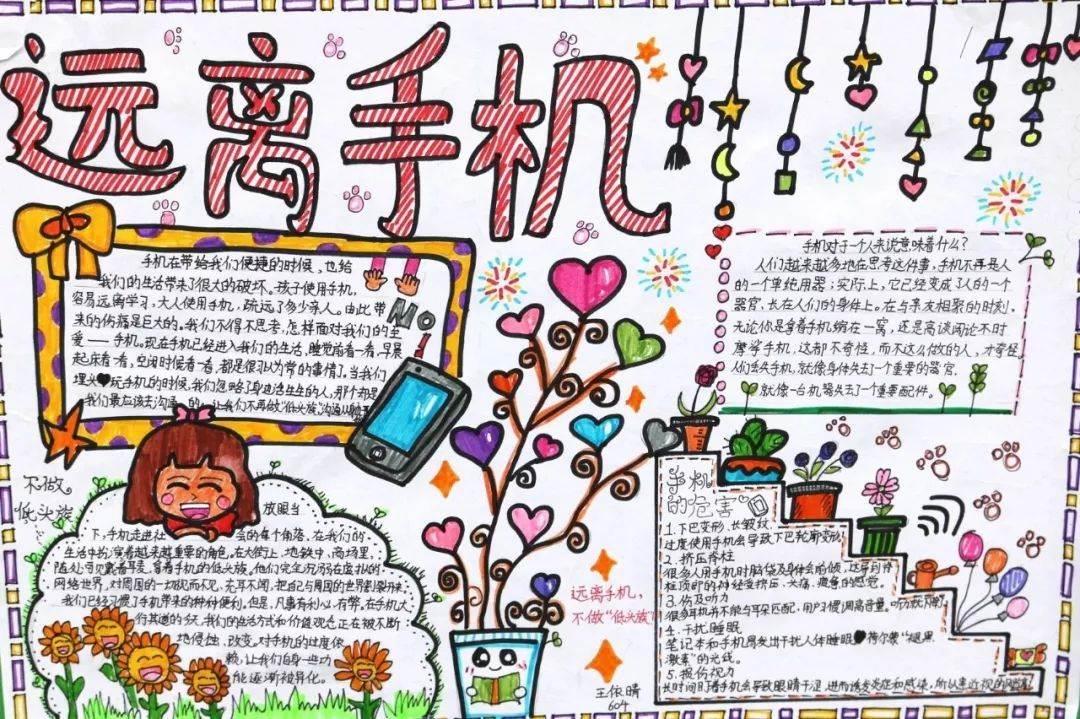 远离手机
手机在带给我们便捷的时候，也给
我们的生活带来了很大的破坏。孩子使用手机，
容易远离学习，大人使用手机，疏远了多少亲人。由此带
来的伤痛是巨大的。我们不得不思考，怎样面对我们的至
爱——手机。现在手机已经进入我们的生活，睡觉前看一看，早晨
起床看一看，空闲时候看一看，都是很习以为常的事情了。当我们
埋头玩手机的时候，我们忽略了身边活生生的人，那才却是
我们最应该去沟通的。让我们不再做“低头族”
No!
手机对于一个人来说意味着什么？
人们越来越多地在思考这件事，手机不再是人
的一个单纯用器；实际上，它已经变成了人的一个
器官，长在人们的身体上。在与亲友相聚的时刻，
无论你是拿着手机蜗在一窝，还是高谈阔论不时
摩挲手机，这都不奇怪，而不这么做的人，才奇怪
人们丢失手机，就像身体失去一个重要的器官，
就像一台机器失去了一个重要配件。
不做。
低头族
放眼当
下，手机走进社会的每个角落，在我们的
生活中扮演着越来越重要的角色。在大街上，地铁中，商场里，
随处可见戴着耳麦，拿着手机的低头族，他们完全沉溺在虚拟的
网络世界，对周围的一切视而不见，充耳不闻，把自己与周围的世界割裂开来。
我们已经习惯了手机带来的种种便利。但是，凡事有利必有弊，在手机大
行其道的今天，我们的生活方式和价值观念正在被不断
地侵蚀、改变。对手机的过度依
赖，让我们自身一些功
能逐渐被异化。
远离手机，
不做“低头族”
王依晴
604
手机
的危害
1.下巴变形，长皱纹
过度使用手机会导致下巴轮廓变形
2.挤压脊柱
很多人用手机时脑袋及身体会前倾，这导致脊
柱顶部的神经受挤压，头痛，疲惫的感觉。
3.伤及听力
很多耳机并不能与耳朵匹配，用户习惯调高音量，听力就下降
4.干扰睡眠
笔记本和手机易发出干扰人体睡眠荷尔蒙“褪黑
激素”的光线。
5.损伤视力
长时间盯着手机会导致眼睛干涩，进而诱发炎症和感染，所以患近视的